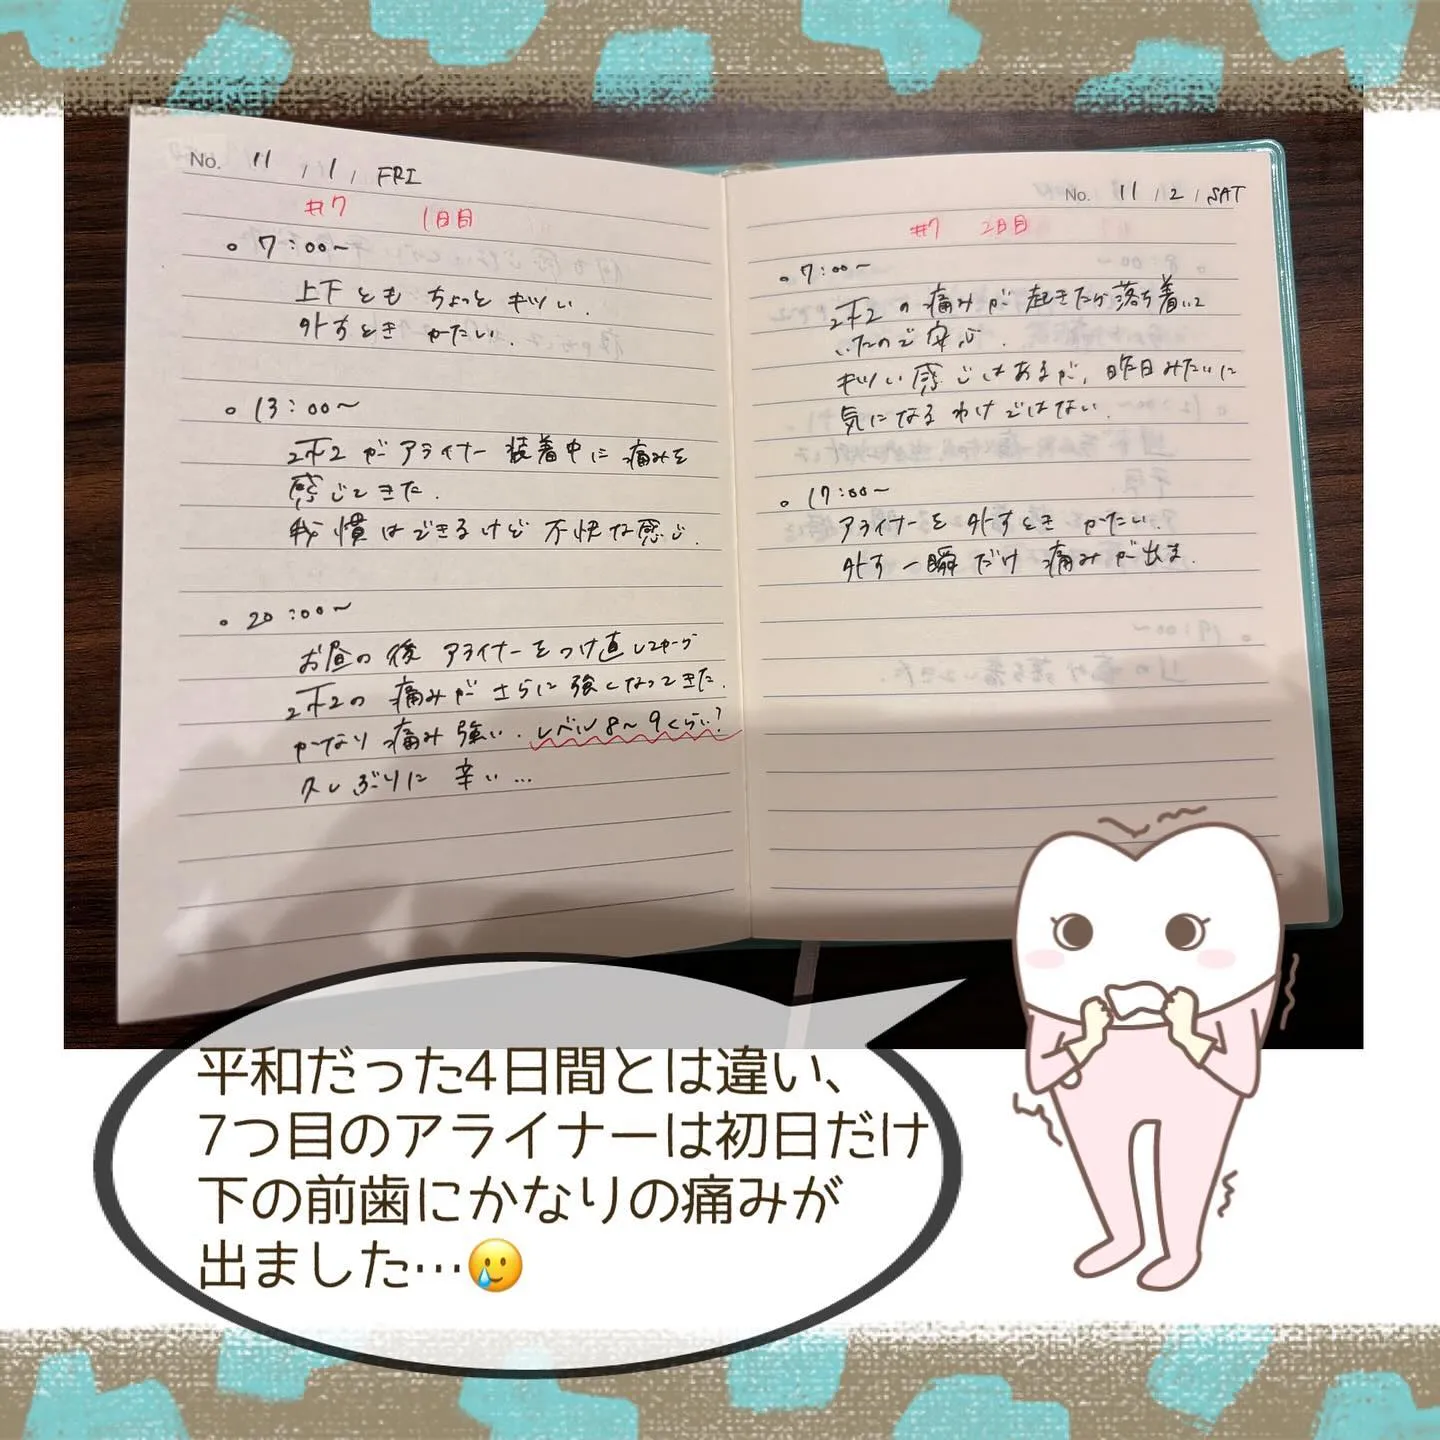 No. 11 / 1 / FRI
#7 1日目
○ 7:00〜
上下とも ちょっと キツい.
外すとき かたい.
○ 13:00〜
2┬2 が アライナー 装着中に 痛みを
感じてきた.
我慢はできるけど 不快な感じ.
○ 20:00〜
お昼の後 アライナーを つけ直してから
2┬2の 痛みが さらに 強くなってきた.
かなり 痛み 強い. レベル8〜9くらい?
久しぶりに 辛い…
No. 11 / 2 / SAT
#7 2日目
○ 7:00〜
2┬2 の 痛みが 起きたら落ち着いて
いたので 安心.
キツい感じはあるが, 昨日みたいに
気になるわけではない.
○ 17:00〜
アライナーを 外すとき かたい.
外す 一瞬だけ 痛みが 出ま.
平和だった4日間とは違い、
7つ目のアライナーは初日だけ
下の前歯にかなりの痛みが
出ました…🥲